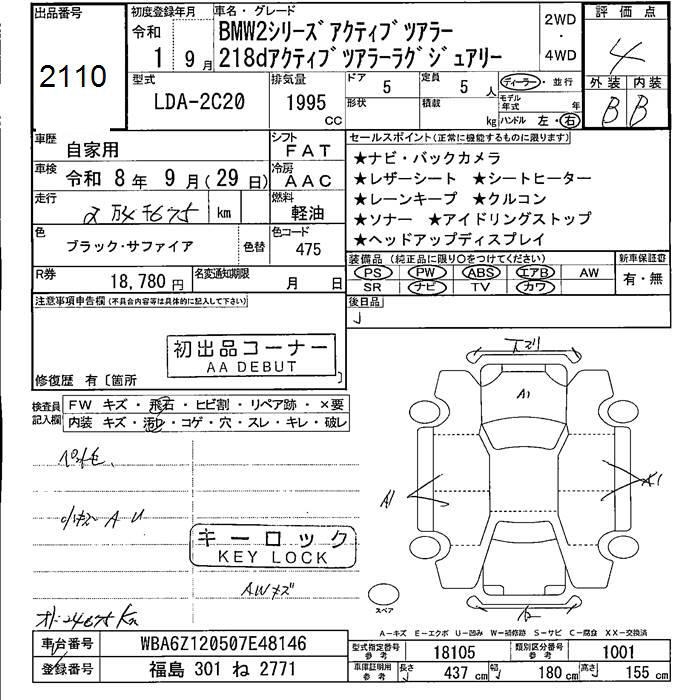 出品番号
2110
初度登録年月
令和
1 9月
車名・グレード
BMW2シリーズアクティブツアラー
218dアクティブツアラーラグジュアリー
2WD
・
4WD
評価点
4
外装 内装
B B
型式
LDA-2C20
排気量
1995
CC
ドア
5
定員
5
人
形状
積載
kg
ディーラー・並行
モデル年式
年
ハンドル 左・右
車歴
自家用
シフト
FAT
車検
令和 8年 9月(29日)
冷房
AAC
走行
2万4千675
km
燃料
軽油
色
ブラック・サファイア
色替
色コード
475
R券
18,780円
名変通知期限
月 日
セールスポイント(正常に機能するものに限ります)
★ナビ・バックカメラ
★レザーシート ★シートヒーター
★レーンキープ ★クルコン
★ソナー ★アイドリングストップ
★ヘッドアップディスプレイ
装備品(純正品に限り○をつけてください)
PS PW ABS エアB AW
SR ナビ TV カワ
新車保証書
有・無
後日品
注意事項申告欄(不具合内容等は具体的に記入して下さい)
初出品コーナー
AA DEBUT
修復歴 有〔箇所 〕
検査員
記入欄
FW キズ・飛石・ヒビ割・リペア跡・×要
内装 キズ・汚れ・コゲ・穴・スレ・キレ・破レ
小キズ A U
キーロック
KEY LOCK
AWキズ
スペア
A1
A1
A-キズ E-エクボ U-凹み W-補修跡 S-サビ C-腐食 XX-交換済
車台番号
WBA6Z120507E48146
登録番号
福島 301 ね 2771
型式指定番号
参考
18105
類別区分番号
参考
1001
車庫証明用
参考
長さ
437 cm
幅
180 cm
高さ
155 cm